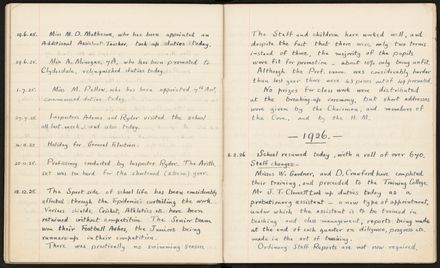 16.6.25. Miss M. D. Matheson, who has been appointed an
Additional Assistant Teacher, took up duties today.
19.6.25. Miss A. Morgan, 7A, who has been promoted to
Clydesdale, relinquished duties today.
1.7.25. Miss M. Pellow, who has been appointed 7th Asst,
commenced duties today.
27.7.25. Inspectors Adams and Ryder visited the school
all last week, and also today.
Holiday for General Election.
20.11.25. Proficiency conducted by Inspector Ryder. The Arith.
set was too hard for the shortened (21 term) year.
18.12.25. The Sport side of school life has been considerably
affected through the Epidemics curtailing the work.
Various shields, Cricket, Athletics etc. have been
retained without competition. The Senior team
won their Football Ashes, the Juniors being
runners-up in their competition.
There was practically no swimming season.
The Staff and children have worked well, and
despite the fact that there were only two terms
instead of three, the majority of the pupils
were fit for promotion - about 10% only being unfit.
Although the Prof. exam. was considerably harder
than last year there were 63 passes out of 69 presented.
No prizes for class work were distributed
at the breaking-up ceremony, but short addresses
were given by the Chairman, and members of
the Com., and by the H.M.
- 1926. -
2.2.26 School resumed today, with a roll of over 640.
Staff changes-
Misses W. Gardner, and D. Crawford have completed
their training, and proceeded to the Training College.
Mr J. T. took up duties today as a
probationary assistant - a new type of appointment,
under which the assistant is to be trained in
teaching and class management, reports being made
at the end of each quarter on diligence, progress etc.
made in the art of training.
Ordinary Staff Reports are not now required.